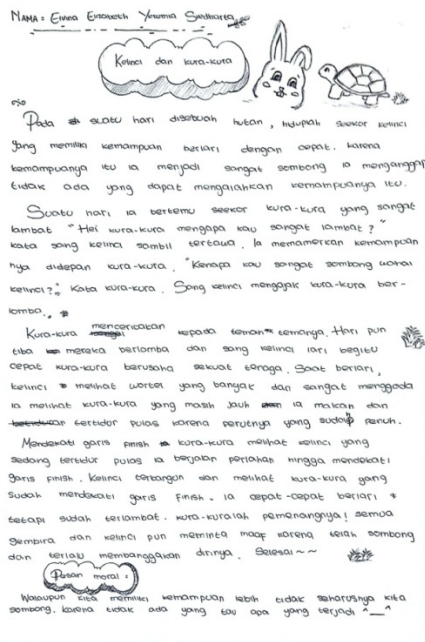 NAMA : Elvina Elizabeth
Kelinci dan kura-kura
Pada suatu hari disebuah hutan, hiduplah seekor kelinci
yang memiliki kemampuan berlari dengan cepat. karena
kemampuanya itu ia menjadi sangat sombong ia menganggap
tidak ada yang dapat mengalahkan kemampuanya itu.
Suatu hari ia bertemu seekor kura-kura yang sangat
lambat "Hei kura-kura mengapa kau sangat lambat?"
kata sang kelinci sambil tertawa. Ia memamerkan kemampuan
nya didepan kura-kura. "Kenapa kau sangat sombong wahai
kelinci?" kata kura-kura. Sang kelinci mengajak kura-kura ber-
lomba.
Kura-kura menceritakan kepada teman temanya. Hari pun
tiba mereka berlomba dan sang kelinci lari begitu
cepat kura-kura berusaha sekuat tenaga. Saat berlari,
kelinci melihat wortel yang banyak dan sangat menggoda
ia melihat kura-kura yang masih jauh ia makan dan
tertidur pulas karena perutnya yang sudah penuh.
Mendekati garis finish kura-kura melihat kelinci yang
sedang tertidur pulas ia berjalan perlahan hingga mendekati
garis finish. Kelinci terbangun dan melihat kura-kura yang
sudah mendekati garis finish. ia cepat-cepat berlari
tetapi sudah terlambat. kura-kuralah pemenangnya! semua
gembira dan kelinci pun meminta maaf karena telah sombong
dan terlalu membanggakan dirinya. Selesai~~
Pesan moral :
Walaupun kita memiliki kemampuan lebih tidak seharusnya kita
sombong. karena tidak ada yang tau apa yang terjadi ^__^